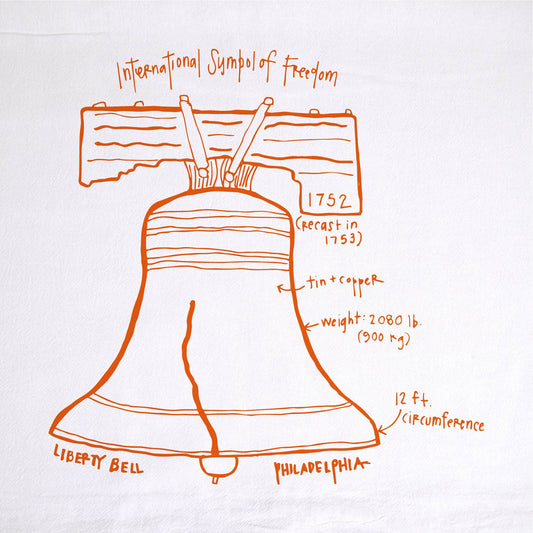 International Symbol of Freedom
1752
(recast in
1753)
tin + copper
weight: 2080 lb.
(900 kg)
12 ft.
circumference
LIBERTY BELL
PHILADELPHIA